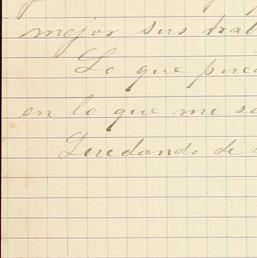 mejor sus trab
Lo que pued
en lo que me se
Quedando de